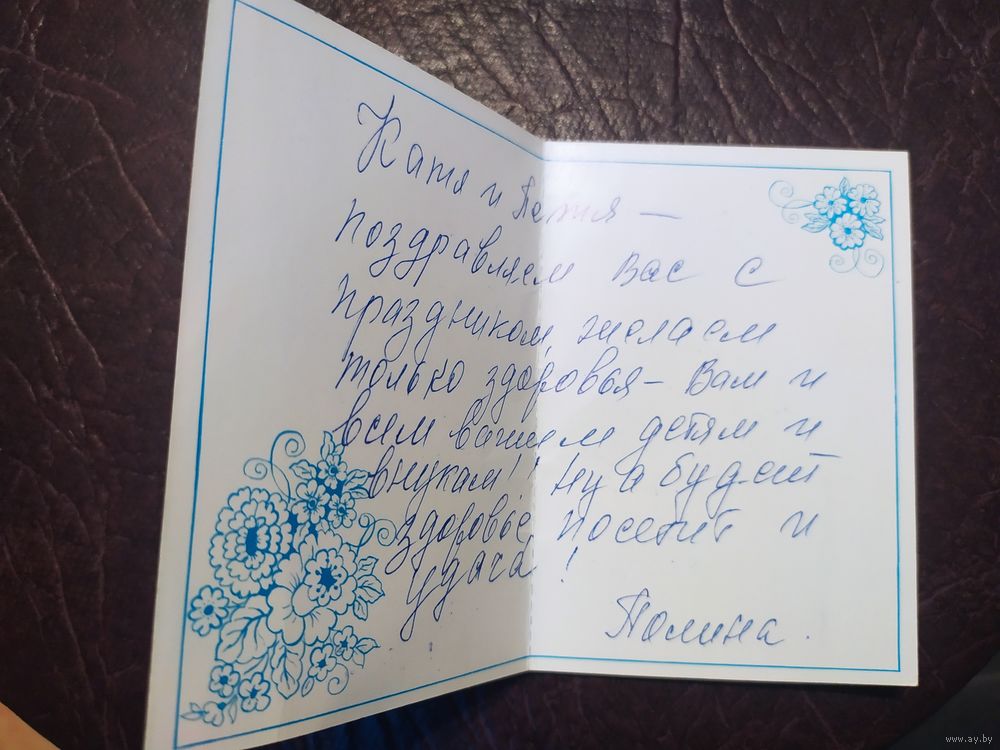 Катя и Петя —
Поздравляем Вас с
праздником, желаем
только здоровья — Вам и
всем вашим детям и
внукам!! Ну а будет
здоровье, посетит и
удача!
Полина.
www.ay.by